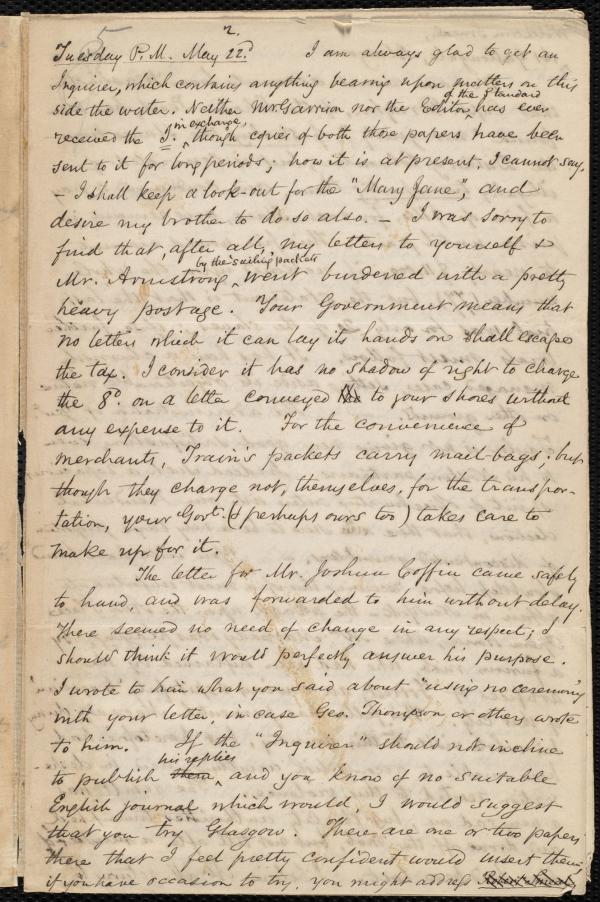 2.
Tuesday P.M. May 22d. I am always glad to get an
Inquirer, which contains anything bearing upon matters on this
side the water. Neither Mr. Garrison nor the Editor of the Standard has ever
received the I. in exchange, though copies of both those papers have been
sent to it for long periods; how it is at present, I cannot say.
– I shall keep a look-out for the "Mary Jane", and
desire my brother to do so also. – I was sorry to
find that, after all, my letters to yourself &
Mr. Armstrong by the sailing packets went burdened with a pretty
heavy postage. Your Government means that
no letters which it can lay its hands on shall escape
the tax. I consider it has no shadow of right to charge
the 8d. on a letter conveyed to your shores without
any expense to it. For the convenience of
merchants, Train's packets carry mail-bags; but
though they charge not, themselves, for the transpor-
tation, your Govt. (& perhaps ours too) takes care to
make up for it.
The letter for Mr. Joshua Coffin came safely
to hand, and was forwarded to him without delay.
There seemed no need of change in any respect; I
should think it would perfectly answer his purpose.
I wrote to him what you said about "using no ceremony"
with your letter, in case Geo. Thompson or others wrote
to him. If the "Inquirer" should not incline
to publish them his replies, and you know of no suitable
English journal which would, I would suggest
that you try Glasgow. There are one or two papers
there that I feel pretty confident would insert them;
if you have occasion to try, you might address Robert Smeal,